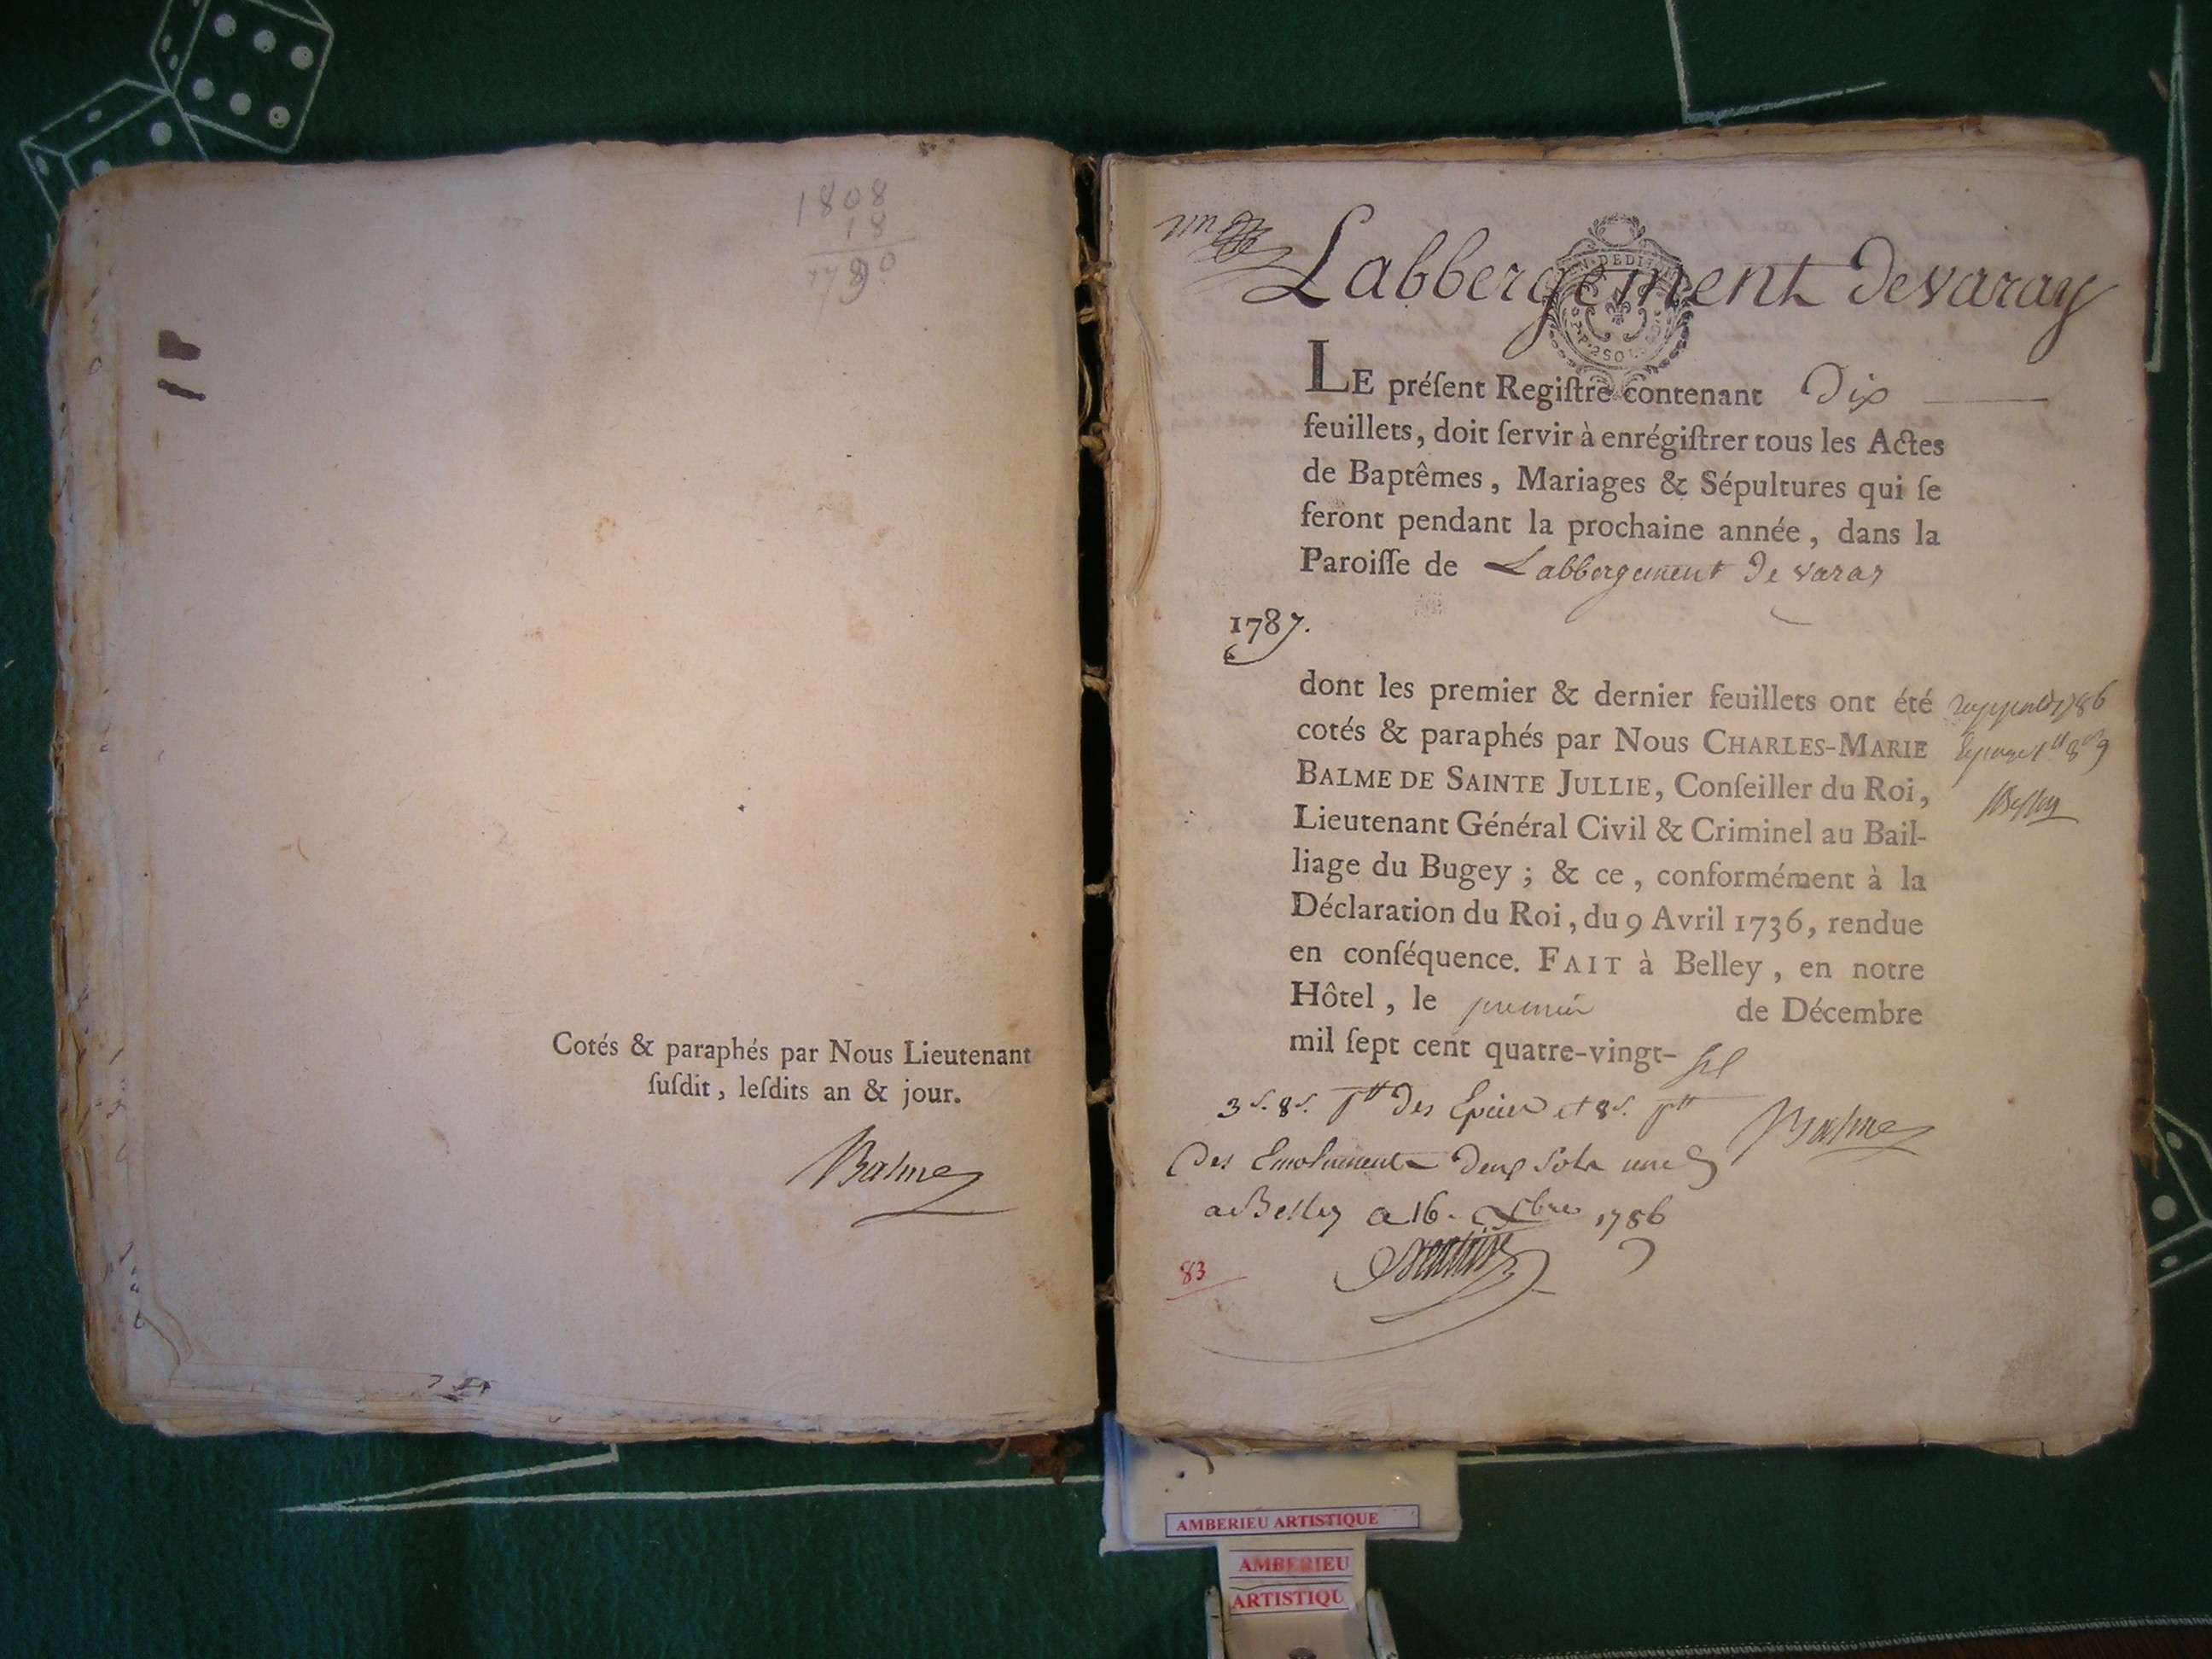 1808
18
1790
Cotés & paraphés par Nous Lieutenant
ſuſdit, leſdits an & jour.
Balme
Labbergement de varay
LE préſent Regiſtre contenant Dix
feuillets, doit ſervir à enrégiſtrer tous les Actes
de Baptêmes, Mariages & Sépultures qui ſe
feront pendant la prochaine année, dans la
Paroiſſe de Labbergement De varay
1787.
dont les premier & dernier feuillets ont été
cotés & paraphés par Nous CHARLES-MARIE
BALME DE SAINTE JULLIE, Conſeiller du Roi,
Lieutenant Général Civil & Criminel au Bail-
liage du Bugey ; & ce, conformément à la
Déclaration du Roi, du 9 Avril 1736, rendue
en conſéquence. FAIT à Belley, en notre
Hôtel, le premier de Décembre
mil ſept cent quatre-vingt-six
1786
3 s. 8 s. des et 8 s.
Balme
Des Emolument deux sols
a Belley 16. 1786
83
AMBERIEU ARTISTIQUE
AMBERIEU
ARTISTIQU